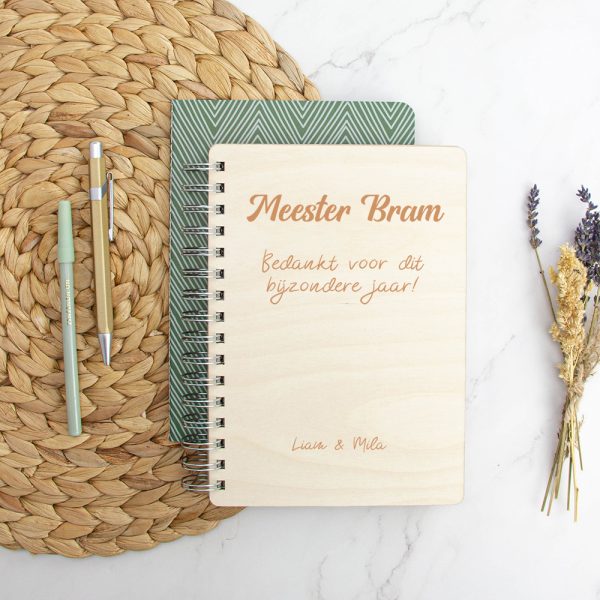 Meester Bram
Bedankt voor dit
bijzondere jaar!
Liam & Mila